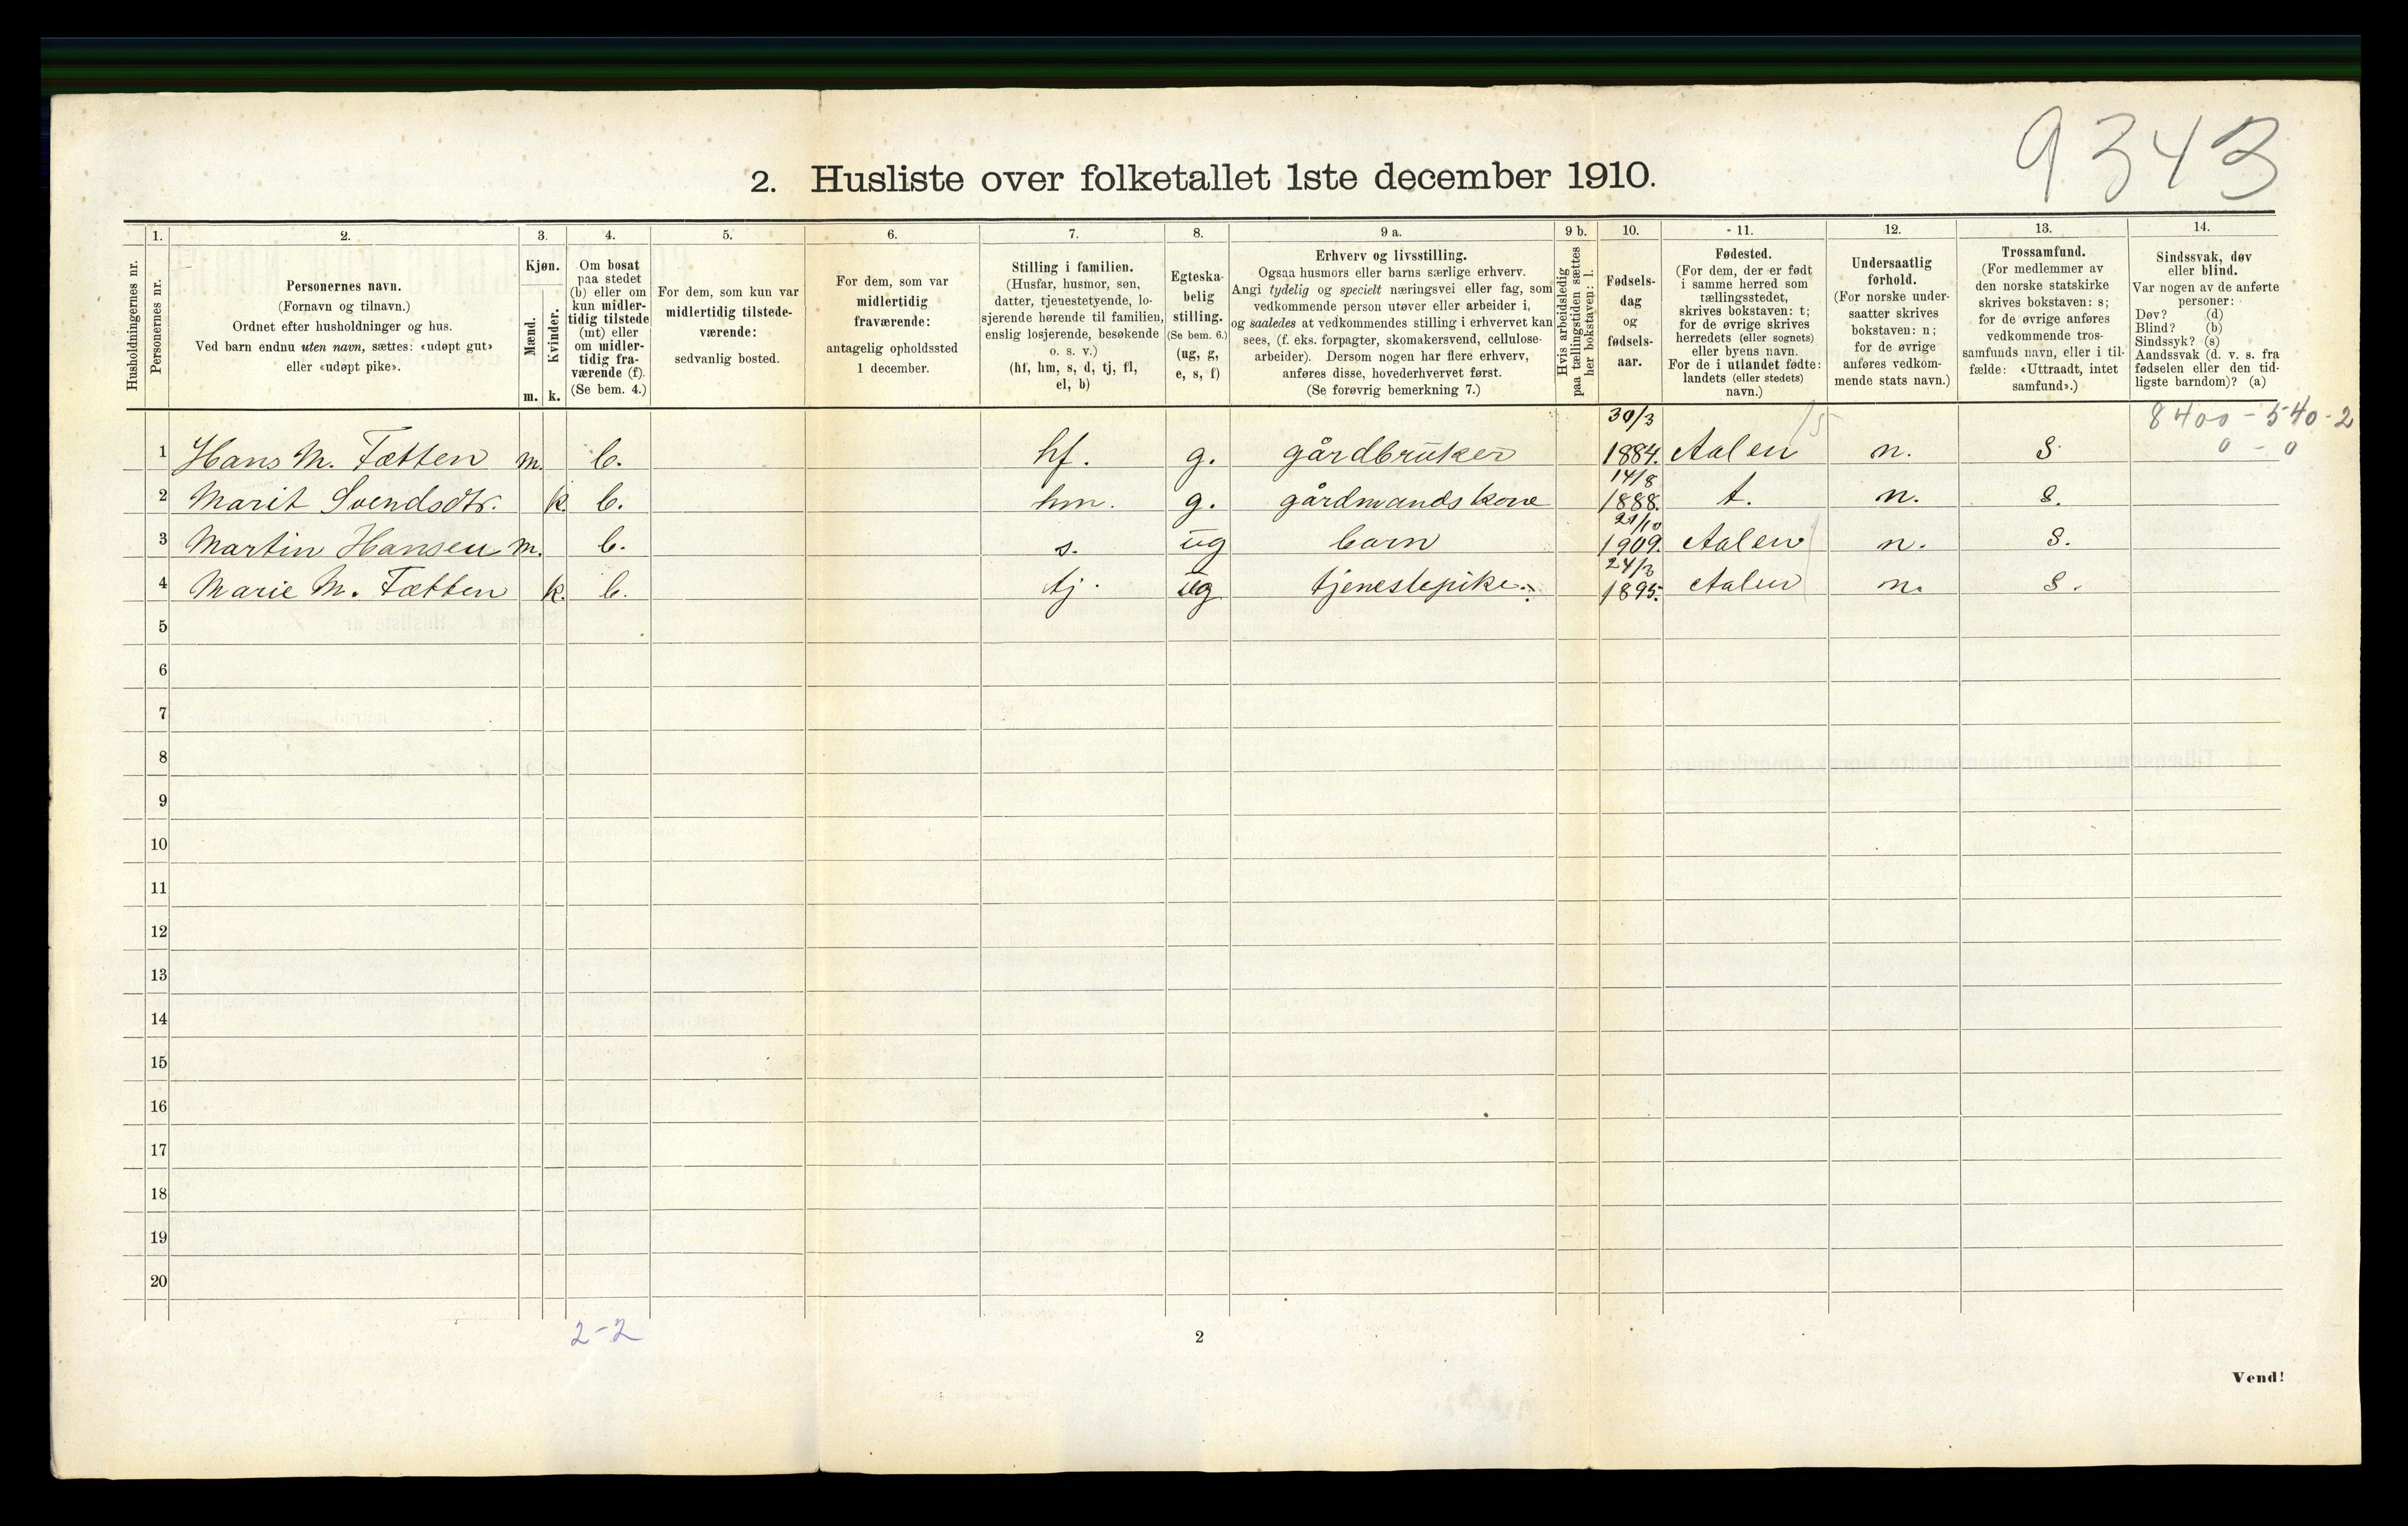 9343
2. Husliste over folketallet 1ste december 1910.
Husholdningernes nr.
1.
Personernes nr.
2.
Personernes navn.
(Fornavn og tilnavn.)
Ordnet efter husholdninger og hus.
Ved barn endnu uten navn, sættes: «udøpt gut»
eller «udøpt pike».
3.
Kjøn.
Mænd.
Kvinder.
m. k.
4.
Om bosat
paa stedet
(b) eller om
kun midler-
tidig tilstede
(mt) eller
om midler-
tidig fra-
værende (f).
(Se bem. 4.)
5.
For dem, som kun var
midlertidig tilstede-
værende:
sedvanlig bosted.
6.
For dem, som var
midlertidig
fraværende:
antagelig opholdssted
1 december.
7.
Stilling i familien.
(Husfar, husmor, søn,
datter, tjenestetyende, lo-
sjerende hørende til familien,
enslig losjerende, besøkende
o. s. v.)
(hf, hm, s, d, tj, fl,
el, b)
8.
Egteska-
belig
stilling.
(Se bem. 6.)
(ug, g,
e, s, f)
9 a.
Erhverv og livsstilling.
Ogsaa husmors eller barns særlige erhverv.
Angi tydelig og specielt næringsvei eller fag, som
vedkommende person utøver eller arbeider i,
og saaledes at vedkommendes stilling i erhvervet kan
sees, (f. eks. forpagter, skomakersvend, cellulose-
arbeider). Dersom nogen har flere erhverv,
anføres disse, hovederhvervet først.
(Se forøvrig bemerkning 7.)
9 b.
Hvis arbeidsledig
paa tællingstiden sættes
her bokstaven: l.
10.
Fødsels-
dag
og
fødsels-
aar.
11.
Fødested.
(For dem, der er født
i samme herred som
tællingsstedet,
skrives bokstaven: t;
for de øvrige skrives
herredets (eller sognets)
eller byens navn.
For de i utlandet fødte:
landets (eller stedets)
navn.)
12.
Undersaatlig
forhold.
(For norske under-
saatter skrives
bokstaven: n;
for de øvrige
anføres vedkom-
mende stats navn.)
13.
Trossamfund.
(For medlemmer av
den norske statskirke
skrives bokstaven: s;
for de øvrige anføres
vedkommende tros-
samfunds navn, eller i til-
fælde: «Uttraadt, intet
samfund».)
14.
Sindssvak, døv
eller blind.
Var nogen av de anførte
personer:
Døv? (d)
Blind? (b)
Sindssyk? (s)
Aandssvak (d. v. s. fra
fødselen eller den tid-
ligste barndom)? (a)
8400 - 540-2
0 - 0
1 Hans M. Tætten m. b. hf. g. gårdbruker 30/3 1884. Aalen n. s
2 Marit Svendsdtr. k. b. hm. g. gårdmandskone 14/8 1888. t. n. s.
3 Martin Hansen m. b. s. ug barn 21/10 1909. Aalen n. s.
4 Marie M. Tætten k. b. tj. ug tjenestepike. 24/3 1895. Aalen n. s.
5
6
7
8
9
10
11
12
13
14
15
16
17
18
19
20
2-2
2
Vend!